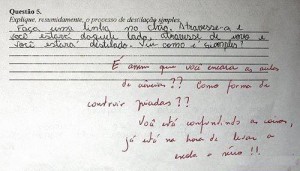 Questão 5.
Explique, resumidamente, o processo de destilação simples.
Faça uma linha no chão. Atravesse-a e
você estará daquele lado, atravesse de novo e
você estará destilado. Viu como é simples?
É assim que você encara as aulas
de ciências?? Como forma de
contar piadas??
Você está confundindo as coisas,
já está na hora de levar a
escola a sério!!